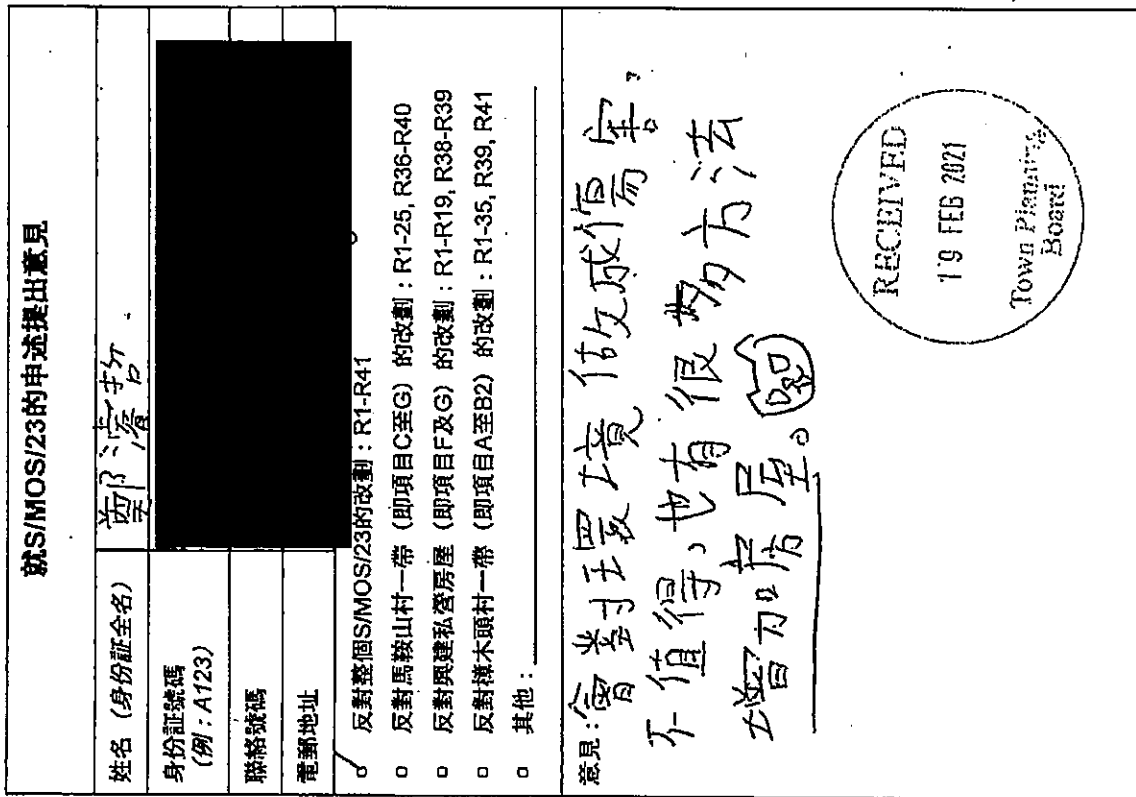 就S/MOS/23的申述提出意見
姓名（身份証全名） 鄭濬哲
身份証號碼
(例：A123)
聯絡號碼
電郵地址
反對整個S/MOS/23的改劃：R1-R41
反對馬鞍山村一帶（即項目C至G）的改劃：R1-25, R36-R40
反對興建私營房屋（即項目F及G）的改劃：R1-R19, R38-R39
反對樟木頭村一帶（即項目A至B2）的改劃：R1-35, R39, R41
其他：
意見：會對環境做成傷害，
不值得，也有很多方法
增加房屋。
RECEIVED
19 FEB 2021
Town Planning
Board